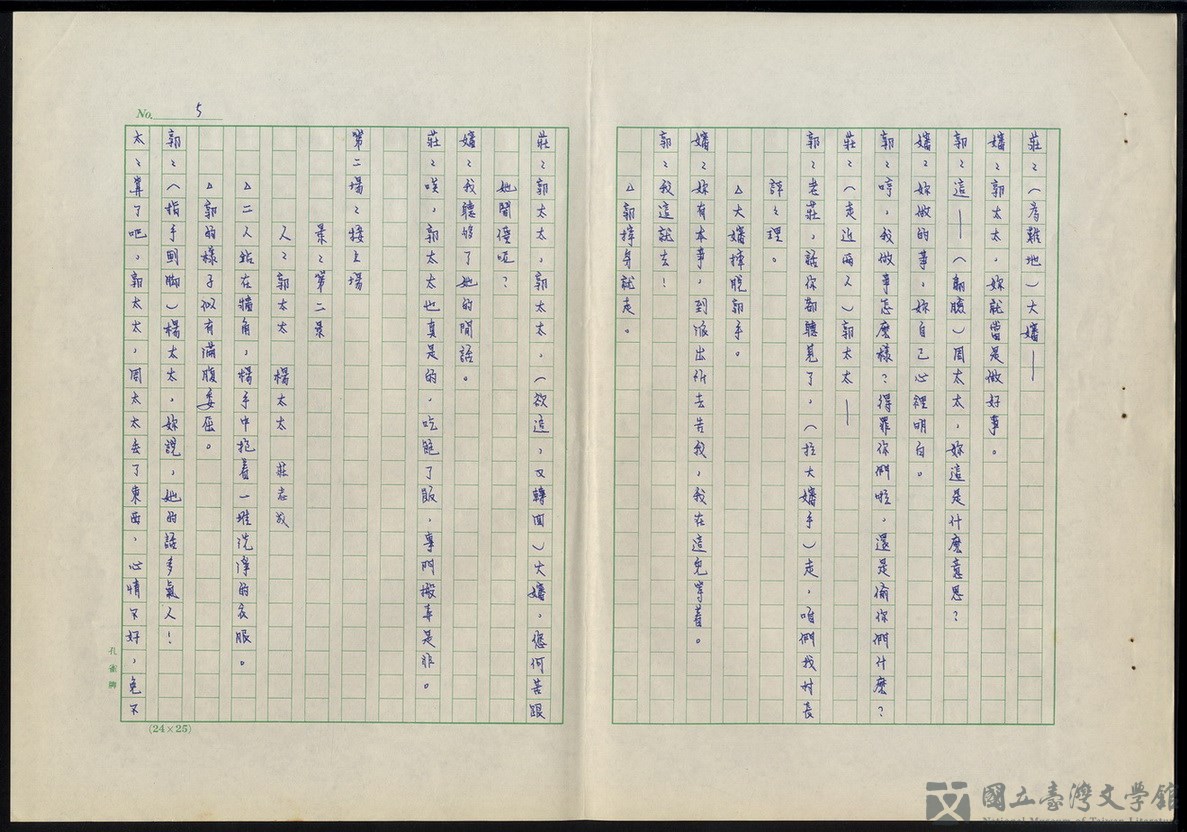 莊:(為難地)大嬸——
嬸:郭太太,妳就當是做好事。
郭:這——(翻臉)周太太,妳這是什麼意思?
嬸:妳做的事,妳自己心裡明白。
郭:哼,我做事怎麼樣?得罪你們啦,還是偷你們什麼?
莊:(走近兩人)郭太太——
郭:老莊,話你都聽見了,(拉大嬸手)走,咱們找村長
評評理。
△大嬸摔脫郭手。
嬸:妳有本事,到派出所去告我,我在這兒等着。
郭:我這就去!
△郭擰身就走。
No. 5
莊:郭太太,郭太太,(欲追,又轉回)大嬸,您何苦跟
她閒傻呢?
嬸:我聽够了她的閒話。
莊:唉,郭太太也真是的,吃飽了飯,專門搬弄是非。
第二場:接上場
景:第二景
人:郭太太 楊太太 莊志
△二人站在牆角,楊手中抱着一堆洗淨的衣服。
△郭的樣子似有滿腹委屈。
郭:(指手劃脚)楊太太,妳說,她的話多氣人!
太:算了吧,郭太太,周太太丟了東西,心情不好,免不
孔雀牌
(24×25)
國立臺灣文學館
National Museum of Taiwan Literature